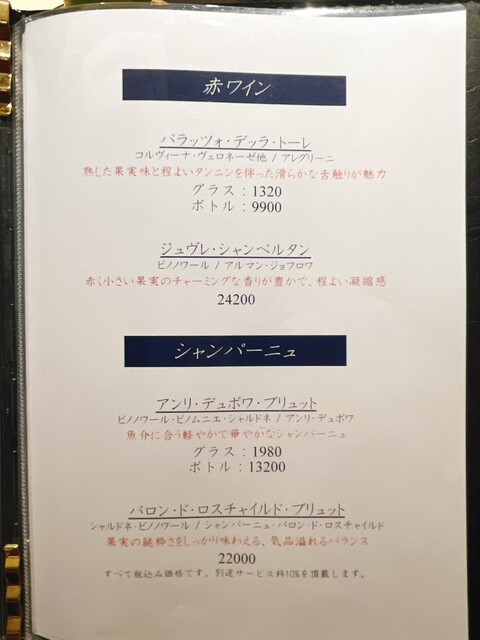 赤ワイン
パラッツォ・デッラ・トーレ
コルヴィーナ・ヴェロネーゼ他 / アレグリーニ
熟した果実味と程よいタンニンを伴った滑らかな舌触りが魅力
グラス：1320
ボトル：9900
ジュヴレ・シャンベルタン
ピノノワール / アルマン・ジョフロワ
赤く小さい果実のチャーミングな香りが豊かで、程よい凝縮感
24200
シャンパーニュ
アンリ・デュボワ・ブリュット
ピノノワール・ピノムニエ・シャルドネ / アンリ・デュボワ
魚介に合う軽やかで華やかなシャンパーニュ
グラス：1980
ボトル：13200
バロン・ド・ロスチャイルド・ブリュット
シャルドネ・ピノノワール / シャンパーニュ・バロン・ド・ロスチャイルド
果実の純粋さをしっかり味わえる、気品溢れるバランス
22000
すべて税込み価格です。別途サービス料10%を頂戴します。